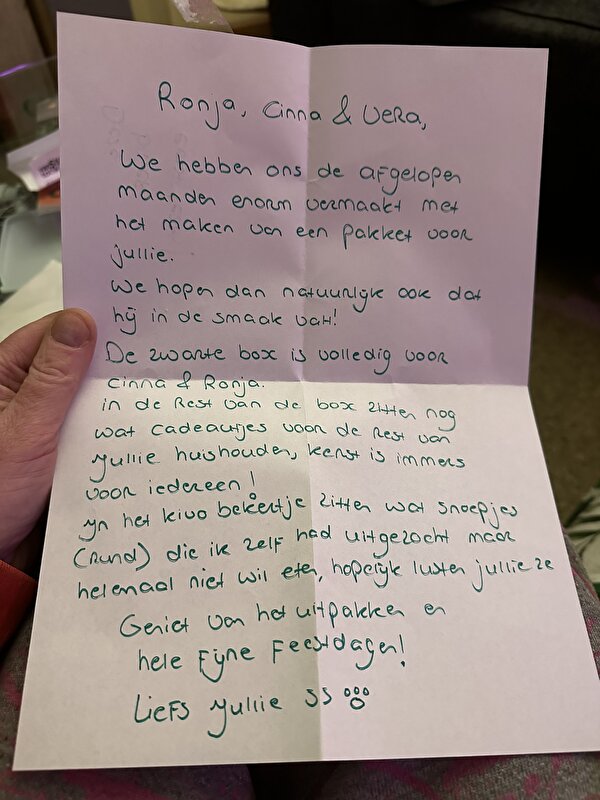 Ronja, Cinna & Vera,
We hebben ons de afgelopen
maanden enorm vermaakt met
het maken van een pakket voor
jullie.
We hopen dan natuurlijk ook dat
hij in de smaak valt!
De zwarte box is volledig voor
Cinna & Ronja.
in de Rest van de box zitten nog
wat cadeautjes voor de Rest van
jullie huishouden, kerst is immers
voor iedereen!
in het kivo bekertje zitten wat snoepjes
(Rund) die ik zelf had uitgezocht maar
helemaal niet wil eten, hopelijk lusten jullie ze
Geniet van het uitpakken en
hele Fijne Feestdagen!
Liefs jullie SS